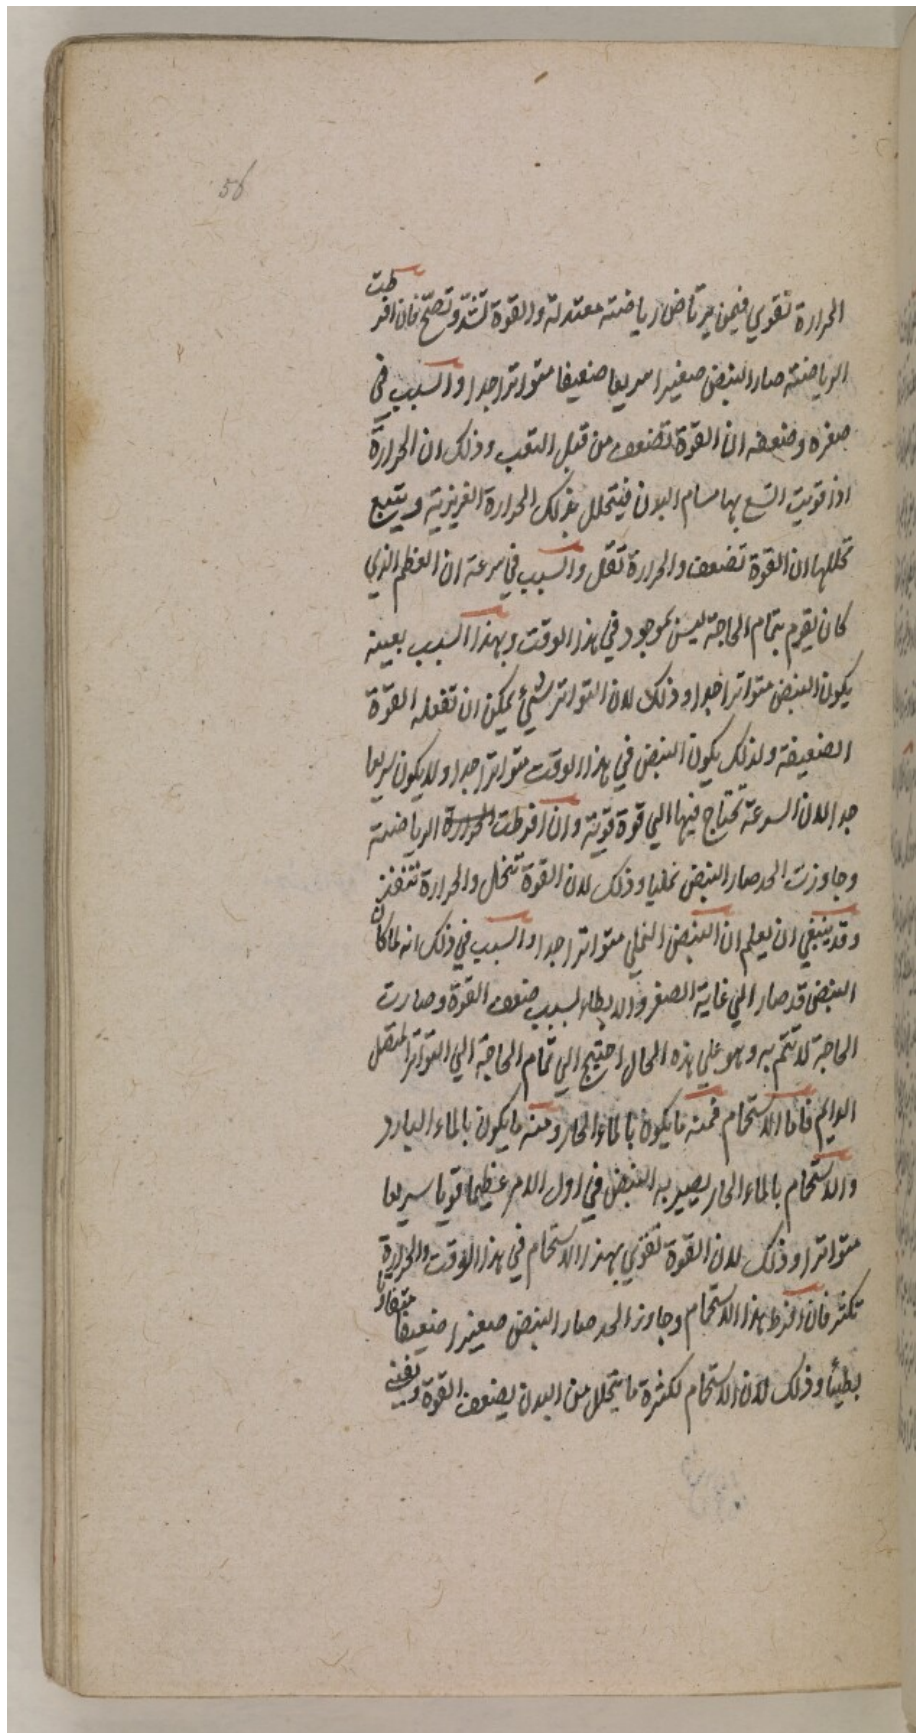 56
الحرارة تقوي فيمن يرتاض رياضته معتدلة والقوة تشتد وتصح فان افرطت
الرياضته صار النبض صغيرا سريعا ضعيفا متواترا جدا والسبب في
صغره وضعفه ان القوة تضعف من قبل التعب وذلك ان الحرارة
اذا قويت اتسع بها مسام البدن فيتحلل بذلك الحرارة الغريزية ويتبع
تحللها ان القوة تضعف والحرارة تقل والسبب في سرعته ان العظم الذي
كان يقوم بتمام الحاجة ليس بموجود في هذا الوقت وبهذا السبب بعينه
يكون النبض متواترا جدا وذلك لان التواتر شيئ يمكن ان تفعله القوة
الضعيفة ولذلك يكون النبض في هذا الوقت متواترا جدا ولا يكون سريعا
جدا لان السرعة تحتاج فيها الي قوة قوية وان افرطت الحرارة الرياضته
وجاوزت الحد صار النبض نمليا وذلك لان القوة تنحل والحرارة تنفذ
وقد ينبغي ان يعلم ان النبض النملي متواترا جدا والسبب في ذلك انه لما كان
النبض قد صار الي غاية الصغر والابطاء لسبب ضعف القوة وصارت
الحاجة لا تتم به وهو علي هذه الحال احتيج الي تمام الحاجة الي التواتر المتصل
الدايم فاما الاستحمام فمنه ما يكون بالماء الحار ومنه ما يكون بالماء البارد
والاستحمام بالماء الحار يصير به النبض في اول الامر عظيما قويا سريعا
متواترا وذلك لان القوة تقوي بهذا الاستحمام في هذا الوقت والحرارة
تكثر فان افرط هذا الاستحمام وجاوز الحد صار النبض صغيرا ضعيفا متفاوتا
بطيئا وذلك لان الاستحمام لكثرة ما يتحلل من البدن يضعف القوة ويفني